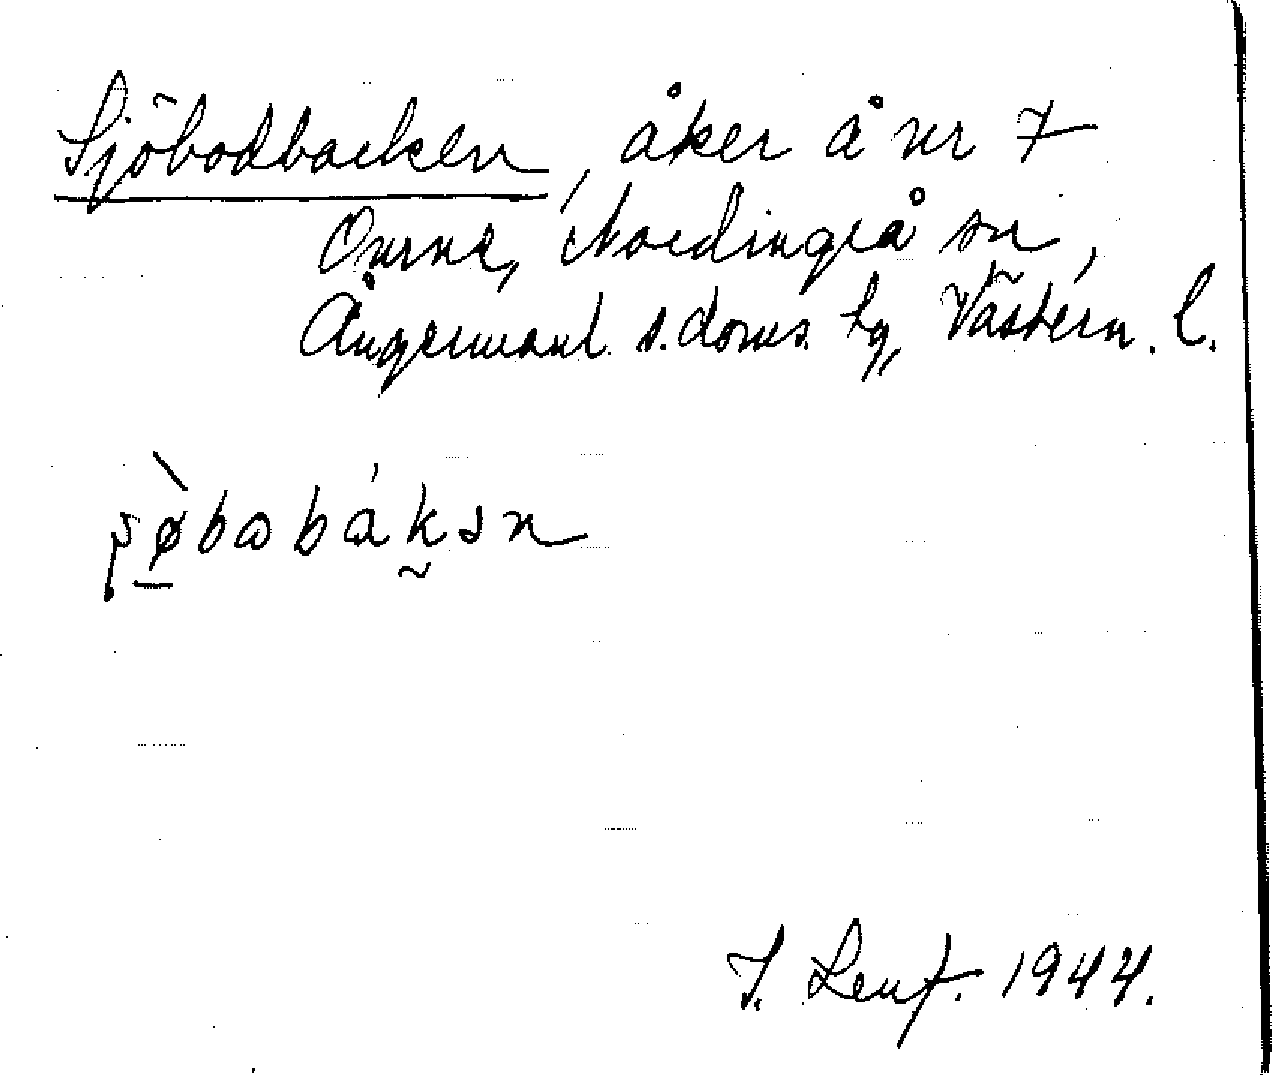 Sjöbodbacken, åker å nr 7
Omne, Nordingrå sn,
Ångermanl. s. doms. hg, Västern. l.
I. Leuf. 1944.